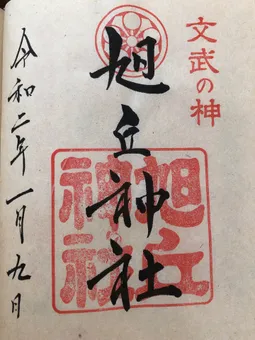 文武の神
旭丘神社
旭丘
神社
令和二年一月九日